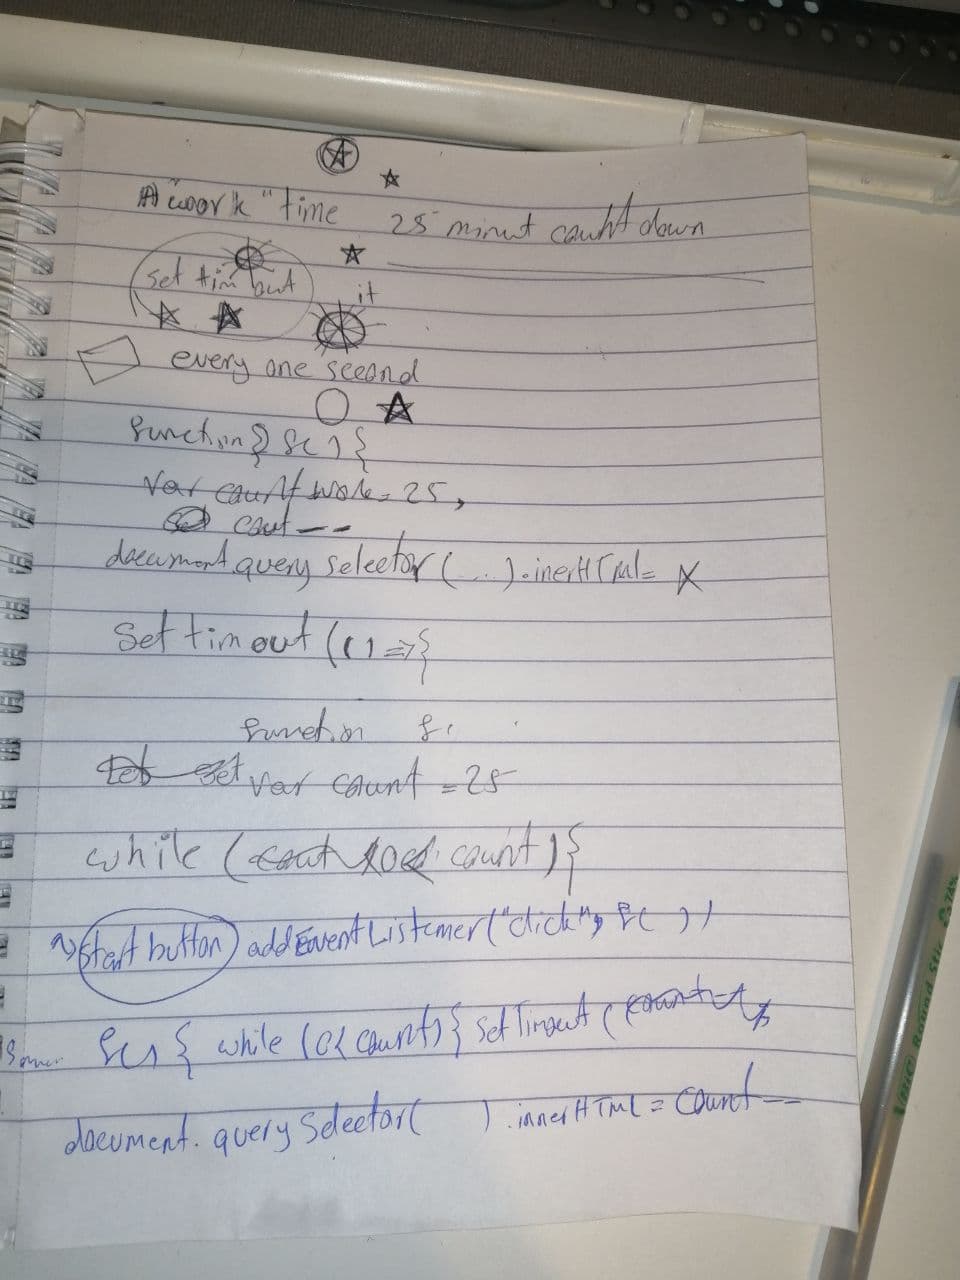 A "work" time 25 minut count down
set tim out
it
every one second
function f( ) {
var count work = 25,
cout --
document.query selector (...).inerHTml = x
Set tim out (( ) => {
function f(
set var count = 25
while ( count ) {
Start button) addEventListemer("click", f( ) )
f( ) { while (0< count) { set Timeout (
document. query Selector( ) .innerHTmL = count --